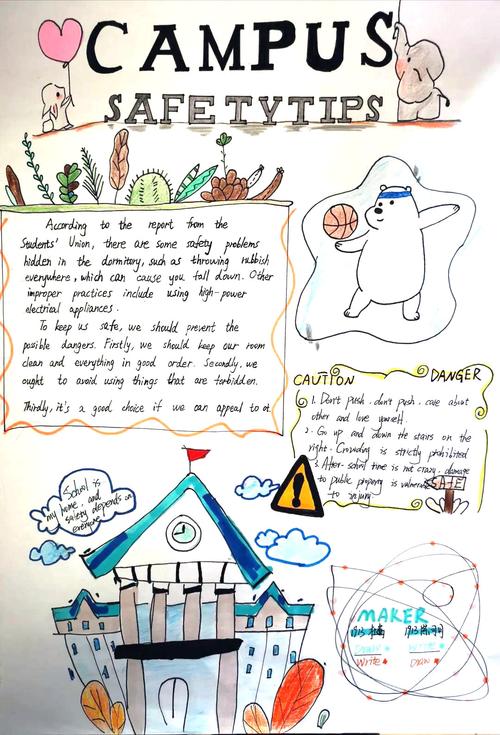 CAMPUS
SAFETY TIPS
According to the report from the
Students' Union, there are some safety problems
hidden in the dormitory, such as throwing rubbish
everywhere, which can cause you fall down. Other
improper practices include using high-power
electrical appliances.
To keep us safe, we should prevent the
possible dangers. Firstly, we should keep our room
clean and everything in good order. Secondly, we
ought to avoid using things that are forbidden.
Thirdly, it's a good choice if we can appeal to ot
CAUTION DANGER
1. Don't push. don't push. care about
other and love yourself.
2. Go up and down the stairs on the
right. Crowding is strictly prohibited
3. After-school time is not crazy. damage
to public property is vulnerable
to injury
SAFE
School is
my home, and
safety depends on
everyone
MAKER
1913 1913
Draw Write
Write Draw